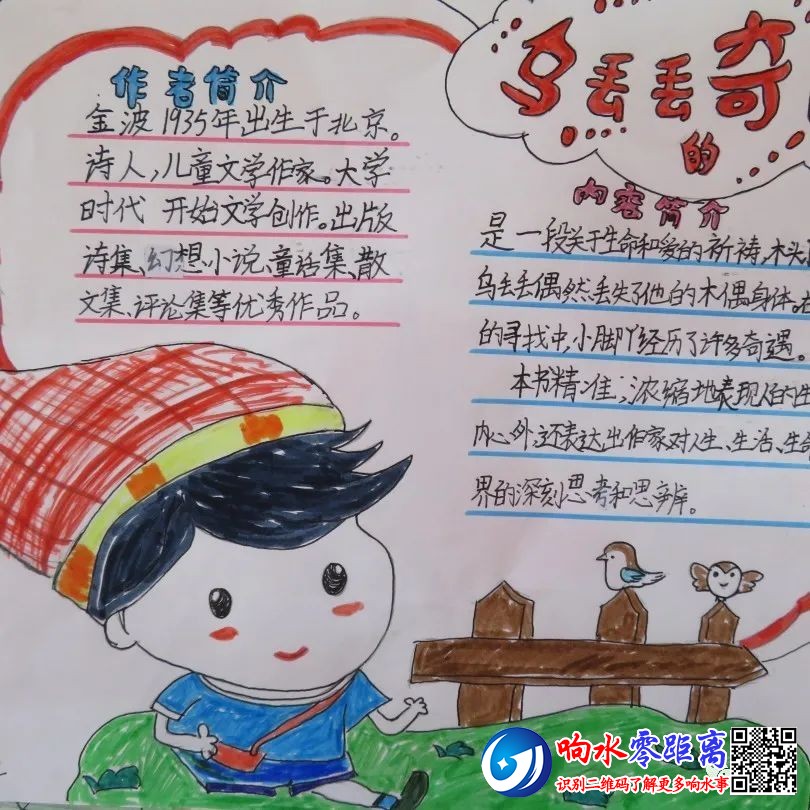 作者简介
金波1935年出生于北京。
诗人,儿童文学作家。大学
时代 开始文学创作。出版
诗集、幻想小说、童话集、散
文集、评论集等优秀作品。
乌丢丢奇
的
内容简介
是一段关于生命和爱的祈祷,木头
乌丢丢偶然丢失了他的木偶身体。
的寻找中,小脚丫经历了许多奇遇。
本书精准、浓缩地表现人的生
内心外,还表达出作家对人生、生活、生命
界的深刻思考和思辨。
响水零距离
识别二维码了解更多响水事